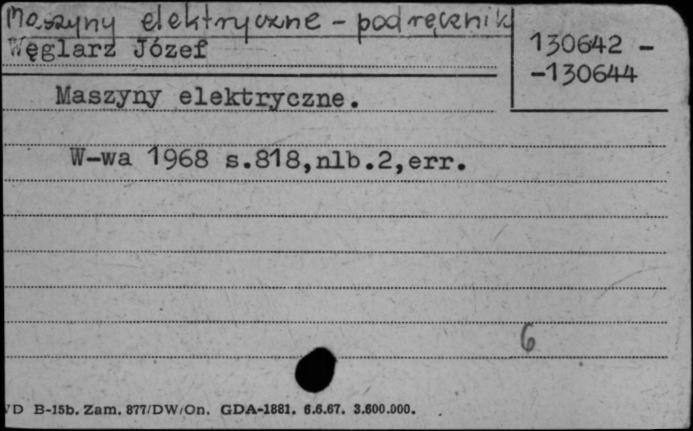 Maszyny elektryczne - podręcznik
Węglarz Józef
130642 -
-130644
Maszyny elektryczne.
W-wa 1968 s.818,nlb.2,err.
6
D B-15b. Zam. 877/DW/On. GDA-1881. 6.6.67. 3.600.000.